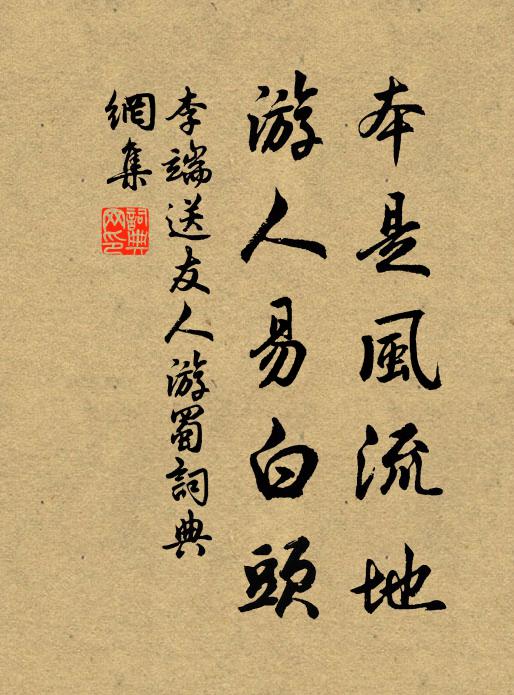 本是風流地
游人易白頭
李端送友人游蜀詞典
網集
詞典網印